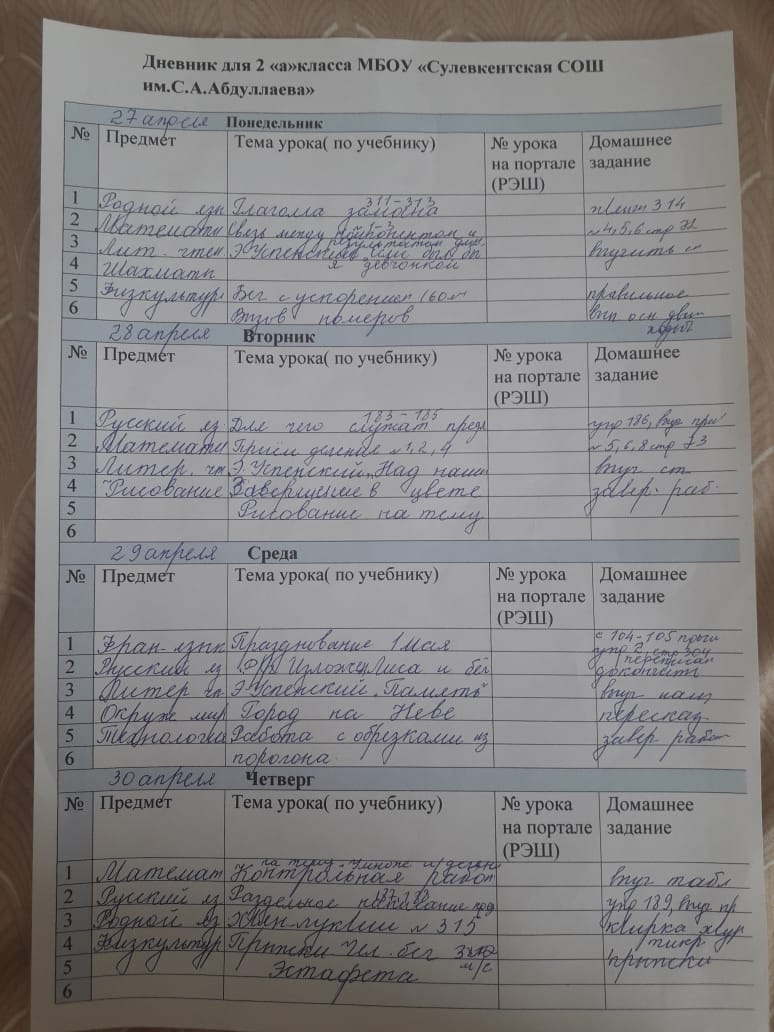 Дневник для 2 «а»класса МБОУ «Сулевкентская СОШ
им.С.А.Абдуллаева»
27 апреля Понедельник
№ Предмет Тема урока( по учебнику) № урока на портале (РЭШ) Домашнее задание
1 Родной язы Глагола замана 311-313 314
2 Математи Связь между компонентом и результатом умн. №4,5,6 стр 72
3 Лит. чтен Э.Успенский Если был бы я девчонкой выучить
4 Шахматы
5 Физкультур. Бег с ускорением 60м правильное
6 Вызов номеров вып осн движ
28 апреля Вторник
№ Предмет Тема урока( по учебнику) № урока на портале (РЭШ) Домашнее задание
1 Русский яз Для чего служат предл 183-185 упр 186, выуч
2 Математи Приём деление №1,2,4 №5,6,8 стр 73
3 Литер. чт Э.Успенский „Над наши выуч ст
4 Рисование Завершение в цвете завер. раб.
5 Рисование на тему
6
29 апреля Среда
№ Предмет Тема урока( по учебнику) № урока на портале (РЭШ) Домашнее задание
1 Фран-язык Празднование 1 мая с 104-105
2 Русский яз Р/р Излож. Лиса и докончить
3 Литер чт Э.Успенский „Память" выуч наиз
4 Окруж мир Город на Неве пересказ
5 Технология Работа с обрезками из завер работ
6 порогона.
30 апреля Четверг
№ Предмет Тема урока( по учебнику) № урока на портале (РЭШ) Домашнее задание
1 Математ Контрольная работ на тему Умноже и делени выуч табл
2 Русский яз Раздельное написание пред упр 189, выуч пр
3 Родной яз №315
4 Физкультур Прыжки Чел. бег прыжки
5 Эстафета
6